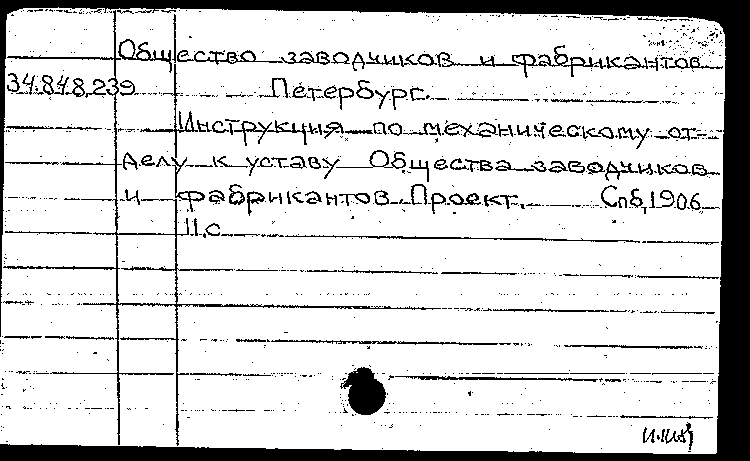 Общество заводчиков и фабрикантов
34.848.239 Петербург.
Инструкция по механическому от-
делу к уставу Общества заводчиков
и фабрикантов. Проект. Спб, 1906
11 с